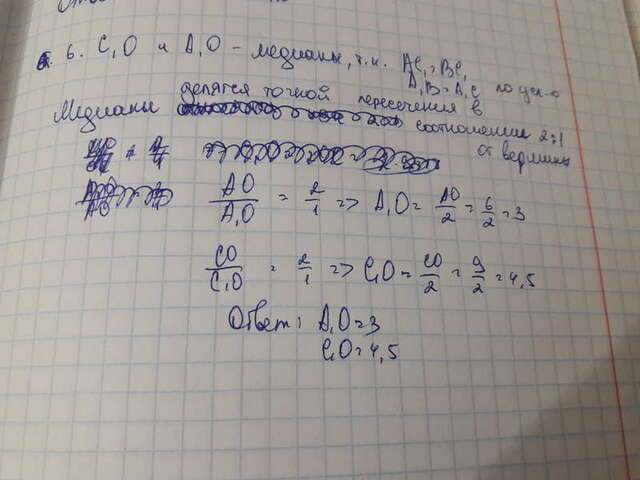 6. C₁O и A₁O - медианы, т.к. AC₁=BC₁
A₁B=A₁C по усл-ю
Медианы делятся точкой пересечения в
соотношении 2:1
от вершины
AO/A₁O = 2/1 => A₁O = AO/2 = 6/2 = 3
CO/C₁O = 2/1 => C₁O = CO/2 = 9/2 = 4,5
Ответ: A₁O=3
C₁O=4,5